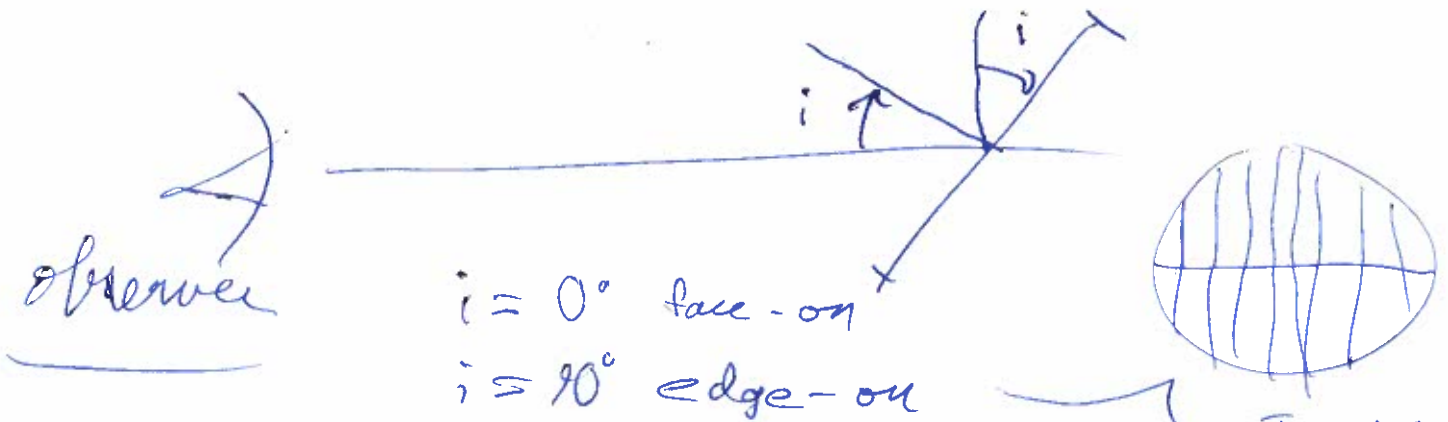 i
i
observer
i = 0° face-on
i = 90° edge-on